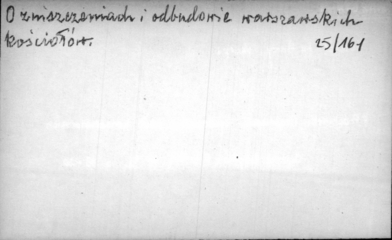 O zniszczeniach i odbudowie warszawskich
kościołów.
25/161